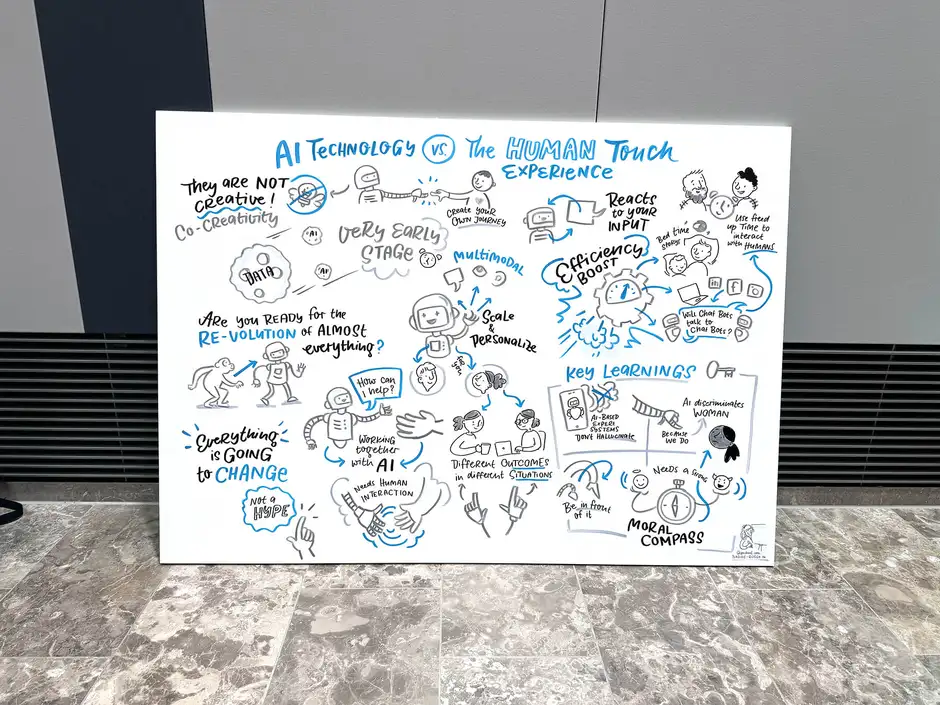 AI TECHNOLOGY VS. The HUMAN Touch
EXPERIENCE
They are NOT
creative!
Co-creativity
CREATE YOUR
OWN JOURNEY
AI
DATA
AI
VERY EARLY
STAGE
MULTIMODAL
SCALE
&
PERSONALIZE
for
you
Reacts
to your
INPUT
Efficiency
BOOST
Bed time
stories
Use freed
up Time to
interact
with HUMANS
in
f
Will Chat Bots
talk to
Chat Bots?
ARE YOU READY for the
RE-VOLUTION of ALMOST
everything?
How can
i help?
Working
together
with AI
Everything
is GOING
to CHANGE
Not a
HYPE
Needs Human
INTERACTION
Different OUTCOMES
in different SITUATIONS
KEY LEARNINGS
AI-BASED
EXPERT
SYSTEMS
DON'T HALLUCINATE
Because
we do
AI discriminates
WOMAN
Be in front
of it
Needs a
MORAL
COMPASS